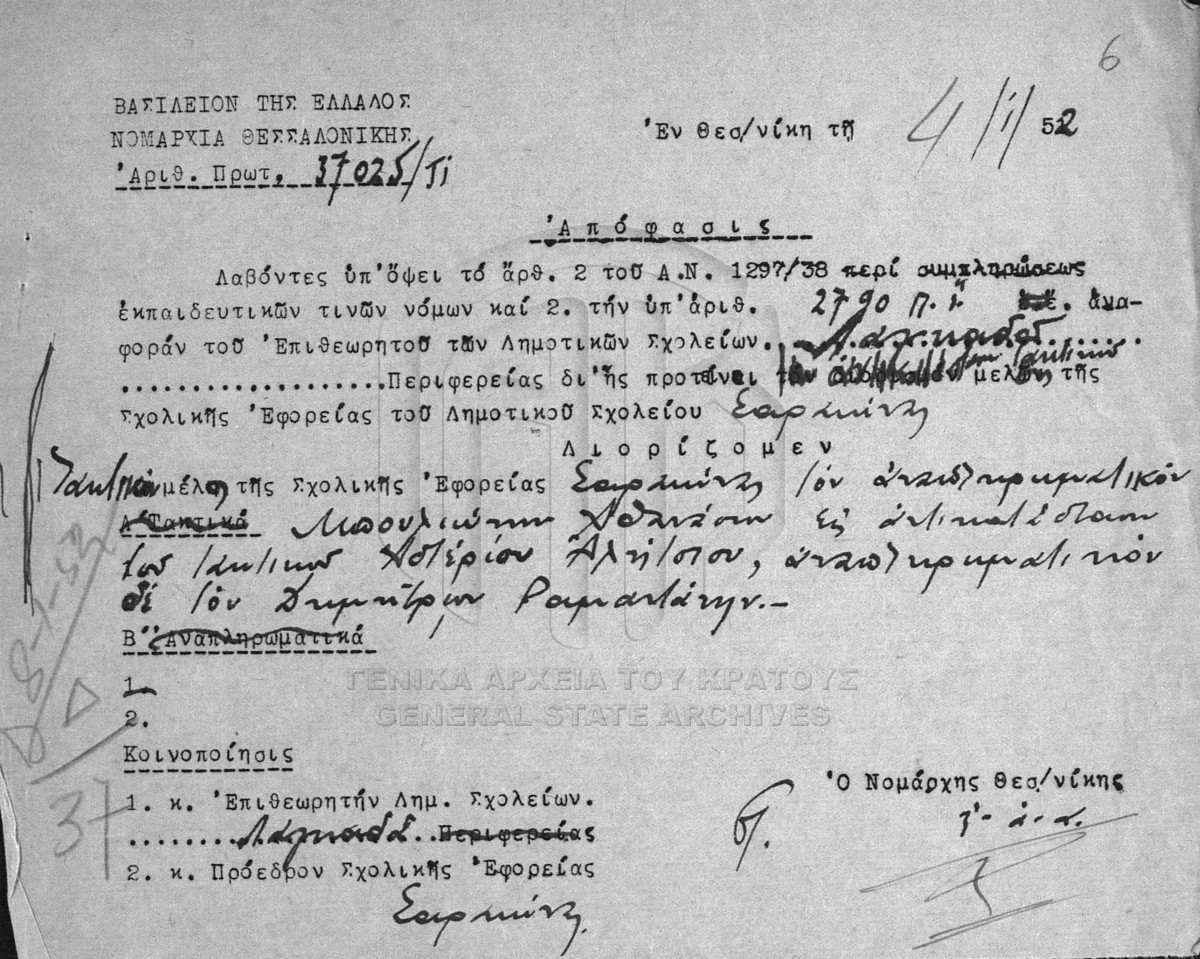 6
ΒΑΣΙΛΕΙΟΝ ΤΗΣ ΕΛΛΑΔΟΣ
ΝΟΜΑΡΧΙΑ ΘΕΣΣΑΛΟΝΙΚΗΣ
Ἀριθ. Πρωτ. 37025/
Ἐν Θεσ/νίκη τῇ 4/1/52
Ἀπόφασις
Λαβόντες ὑπ'ὄψει τό ἄρθ. 2 τοῦ Α.Ν. 1297/38 περί συμπληρώσεως
ἐκπαιδευτικῶν τινῶν νόμων καί 2. τήν ὑπ'ἀριθ. 2790 π.ἔ. ἀνα-
φοράν τοῦ Ἐπιθεωρητοῦ τῶν Δημοτικῶν Σχολείων. Λαγκαδᾶ
Περιφερείας δι'ἧς προτείνει τακτικοῦ μέλους τῆς
Σχολικῆς Ἐφορείας τοῦ Δημοτικοῦ Σχολείου Σαρακήνας
Διορίζομεν
Τακτικόν μέλος τῆς Σχολικῆς Ἐφορείας Σαρακήνας τόν ἀναπληρωματικόν
Α' Τακτικά Μπουλιώτην Ἀθανάσιον εἰς ἀντικατάστασιν
τοῦ τακτικοῦ Ἀστερίου, ἀναπληρωματικόν
δέ τόν Δημήτριον Ραμαντάνην.-
Β' Ἀναπληρωματικά
1.
2.
8-1-52
37
Κοινοποίησις
1. κ. Ἐπιθεωρητήν Δημ. Σχολείων.
Λαγκαδᾶ Περιφερείας
2. κ. Πρόεδρον Σχολικῆς Ἐφορείας
Σαρακήνας
Ὁ Νομάρχης Θεσ/νίκης
ΓΕΝΙΚΑ ΑΡΧΕΙΑ ΤΟΥ ΚΡΑΤΟΥΣ
GENERAL STATE ARCHIVES